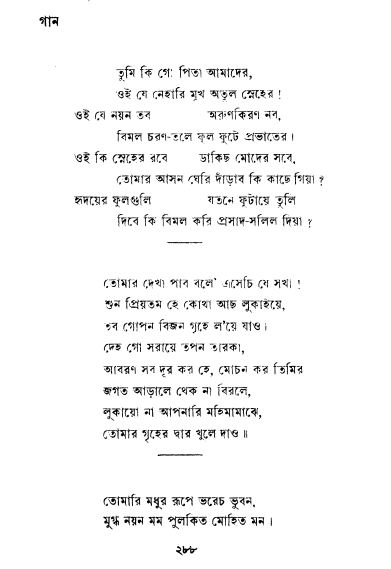 গান
তুমি কি গো পিতা আমাদের,
ওই যে নেহারি মুখ অতুল স্নেহের !
ওই যে নয়ন তব অরুণকিরণ নব,
বিমল চরণ-তলে ফুল ফুটে প্রভাতের।
ওই কি স্নেহের রবে ডাকিছ মোদের সবে,
তোমার আসন ঘেরি দাঁড়াব কি কাছে গিয়া ?
হৃদয়ের ফুলগুলি যতনে ফুটায়ে তুলি
দিবে কি বিমল করি প্রসাদ-সলিল দিয়া ?
তোমার দেখা পাব বলে' এসেচি যে সখা !
শুন প্রিয়তম হে কোথা আছ লুকাইয়ে,
তব গোপন বিজন গৃহে ল'য়ে যাও।
দেহ গো সরায়ে তপন তারকা,
আবরণ সব দূর কর হে, মোচন কর তিমির
জগত আড়ালে থেক না বিরলে,
লুকায়ো না আপনারি মহিমামাঝে,
তোমার গৃহের দ্বার খুলে দাও॥
তোমারি মধুর রূপে ভরেচ ভুবন,
মুগ্ধ নয়ন মম পুলকিত মোহিত মন।
২৮৮